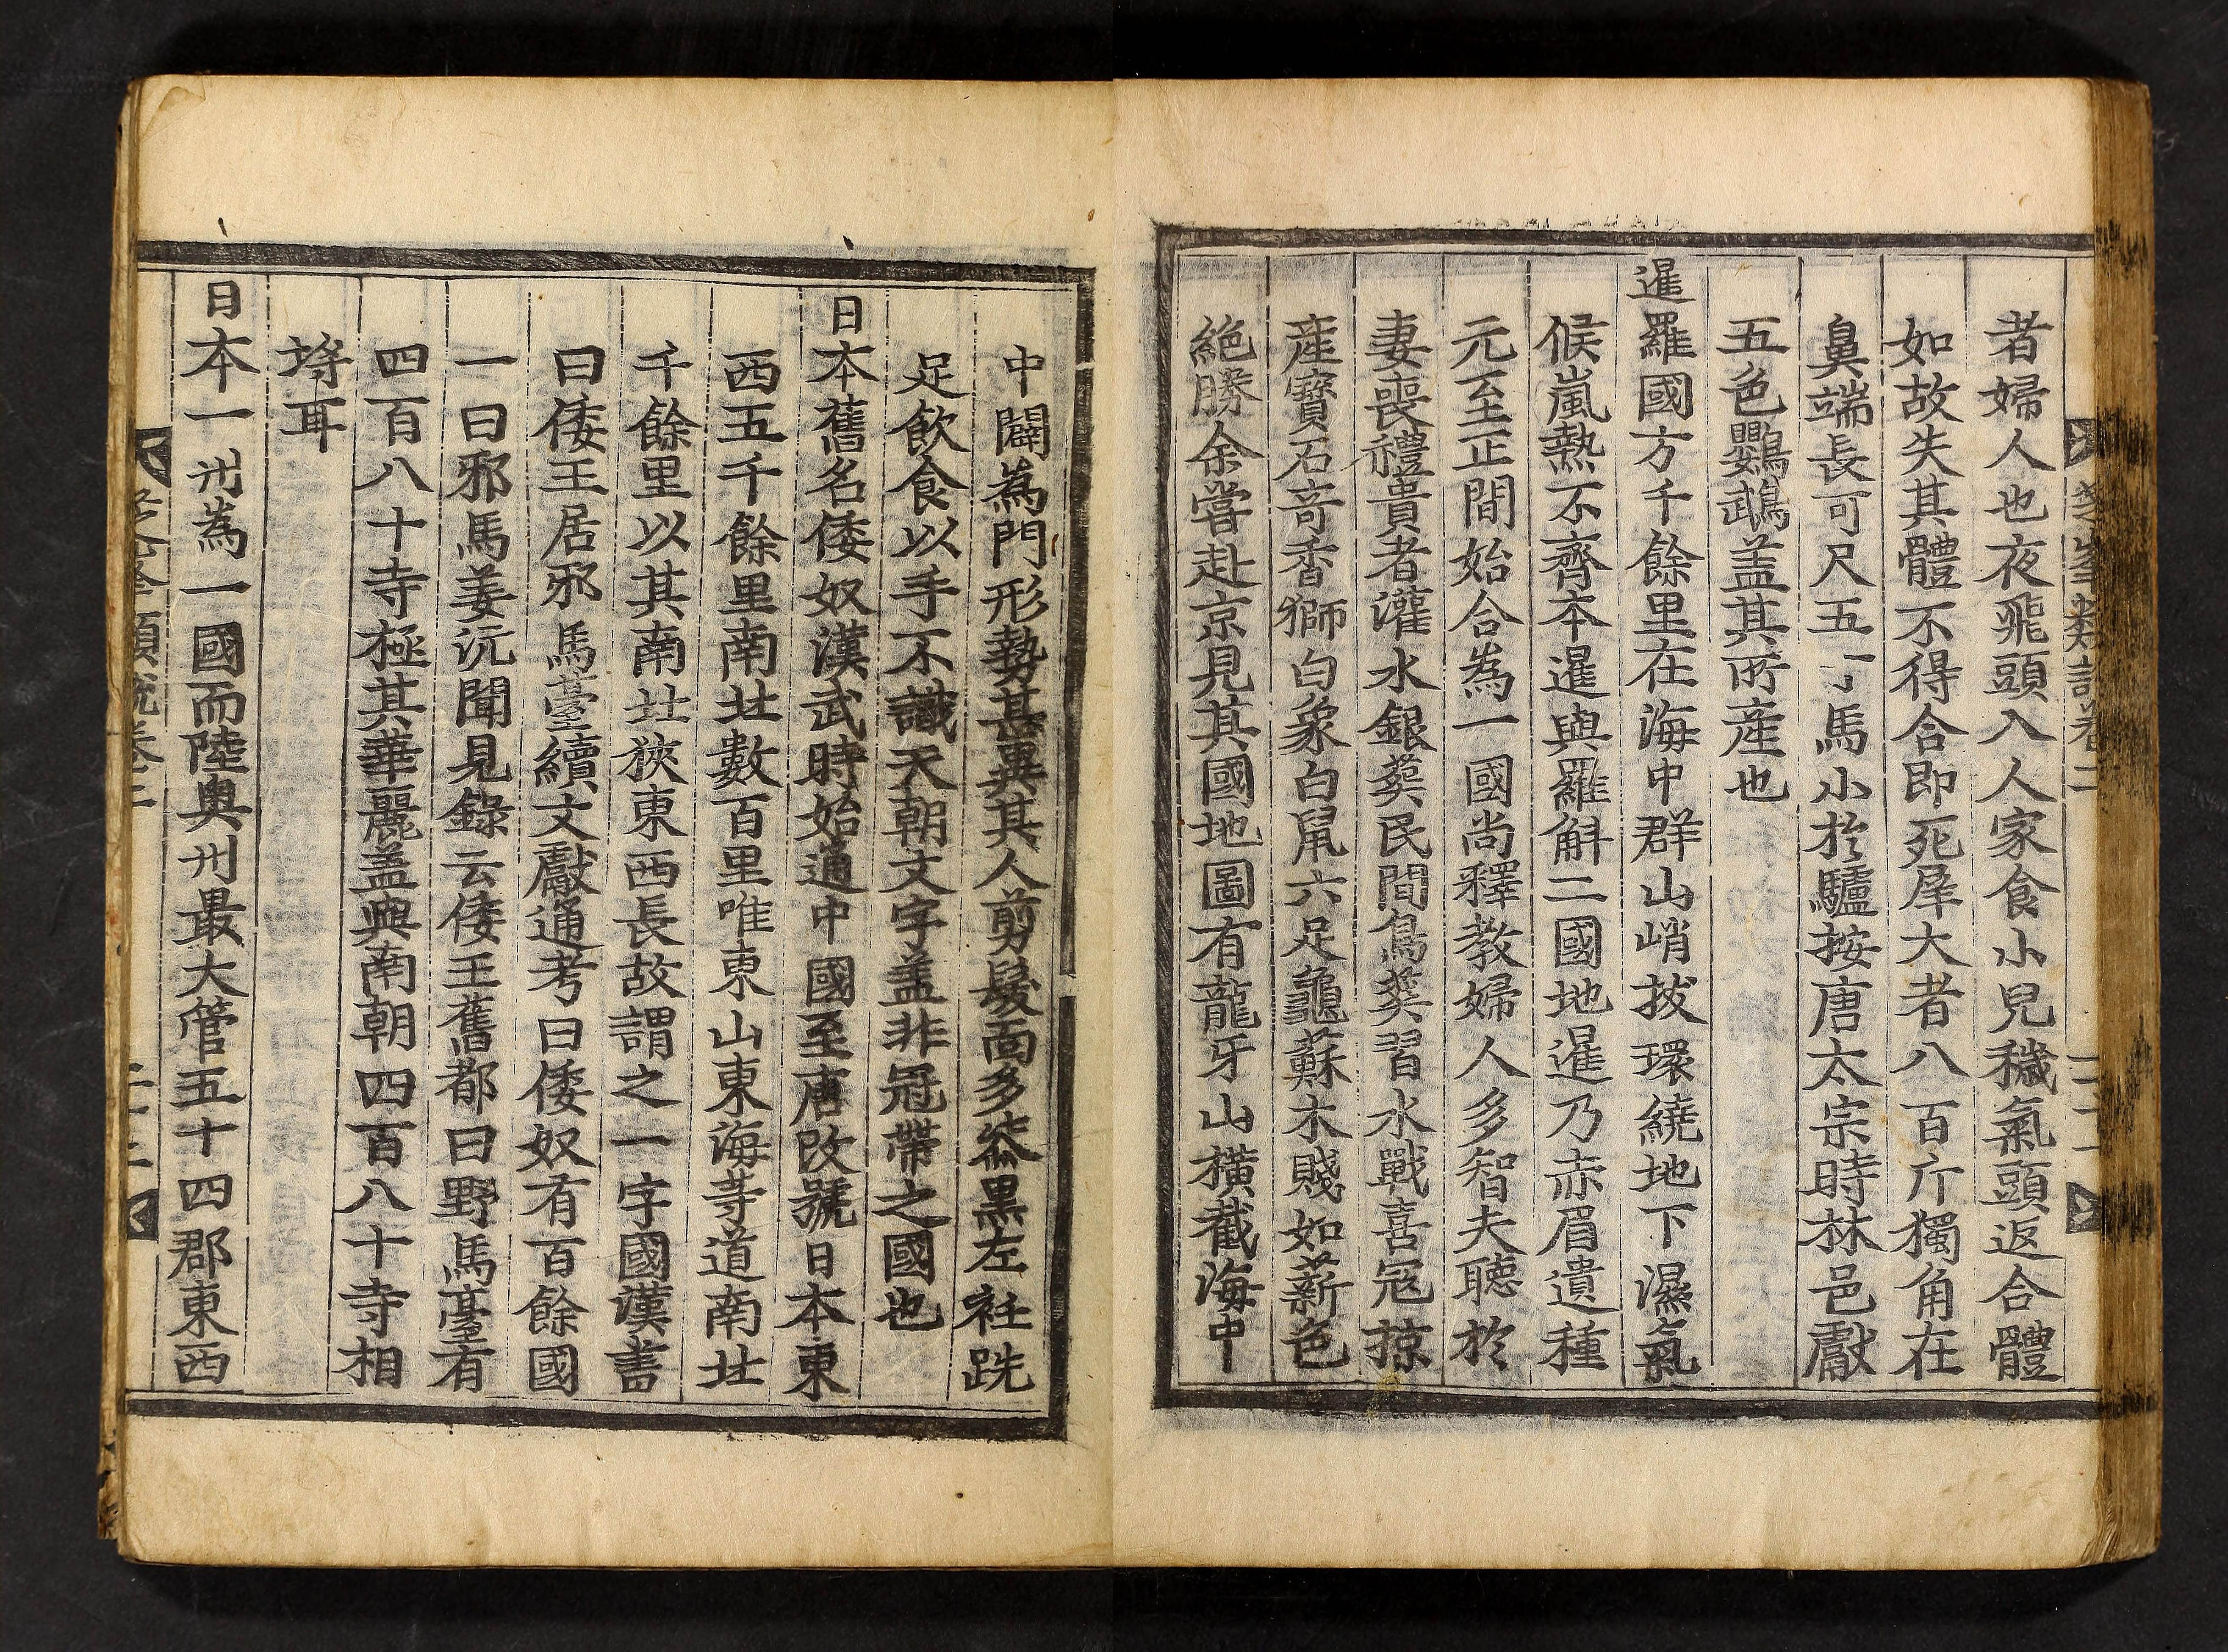 芝峯類說卷二
二十二
者婦人也夜飛頭入人家食小兒穢氣頭返合體
如故失其體不得合即死犀大者八百斤獨角在
鼻端長可尺五寸馬小於驢按唐太宗時林邑獻
五色鸚鵡盖其所産也
暹羅國方千餘里在海中群山峭拔環繞地下濕氣
候嵐熱不齊本暹與羅斛二國地暹乃赤眉遺種
元至正間始合為一國尚釋教婦人多智夫聽於
妻喪禮貴者灌水銀葬民間鳥葬習水戰喜冦掠
産寶石奇香獅白象白鼠六足龜蘇木賤如薪色
絶勝余嘗赴京見其國地圖有龍牙山橫截海中
中闢為門形勢甚異其人剪髮面多黎黒左衽跣
足飲食以手不識天朝文字盖非冠帶之國也
日本舊名倭奴漢武時始通中國至唐改號日本東
西五千餘里南北數百里唯東山東海等道南北
千餘里以其南北狹東西長故謂之一字國漢書
曰倭王居邪馬臺續文獻通考曰倭奴有百餘國
一曰邪馬姜沆聞見錄云倭王舊都曰野馬臺有
四百八十寺極其華麗盖與南朝四百八十寺相
埒耳
日本一州為一國而陸奥州最大管五十四郡東西
類說卷二
二十二